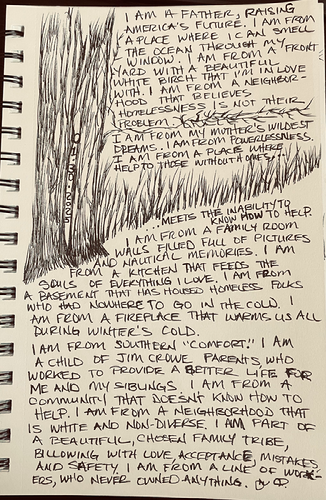 I AM A FATHER, RAISING
AMERICA'S FUTURE. I AM FROM
A PLACE WHERE I CAN SMELL
THE OCEAN THROUGH MY
WINDOW. I AM FROM A FRONT
YARD WITH A BEAUTIFUL
WHITE BIRCH THAT I'M IN LOVE
WITH. I AM FROM A NEIGHBOR-
HOOD THAT BELIEVES
HOMELESSNESS IS NOT THEIR
PROBLEM.
I AM FROM MY MOTHER'S WILDEST
DREAMS. I AM FROM POWERLESSNESS.
I AM FROM A PLACE WHERE
HELP TO THOSE WITHOUT ONES...
...MEETS THE INABILITY TO
KNOW HOW TO HELP.
I AM FROM A FAMILY ROOM
WALLS FILLED FULL OF PICTURES
AND NAUTICAL MEMORIES. I AM
FROM A KITCHEN THAT FEEDS THE
SOULS OF EVERYTHING I LOVE. I AM FROM
A BASEMENT THAT HAS HOUSED HOMELESS FOLKS
WHO HAD NOWHERE TO GO IN THE COLD. I
AM FROM A FIREPLACE THAT WARMS US ALL
DURING WINTER'S COLD.
I AM FROM SOUTHERN "COMFORT." I AM
A CHILD OF JIM CROWE PARENTS, WHO
WORKED TO PROVIDE A BETTER LIFE FOR
ME AND MY SIBLINGS. I AM FROM A
COMMUNITY THAT DOESN'T KNOW HOW TO
HELP. I AM FROM A NEIGHBORHOOD THAT
IS WHITE AND NON-DIVERSE. I AM PART OF
A BEAUTIFUL, CHOSEN FAMILY TRIBE,
BILLOWING WITH LOVE, ACCEPTANCE, MISTAKES
AND SAFETY. I AM FROM A LINE OF WORK-
ERS, WHO NEVER OWNED ANYTHING.